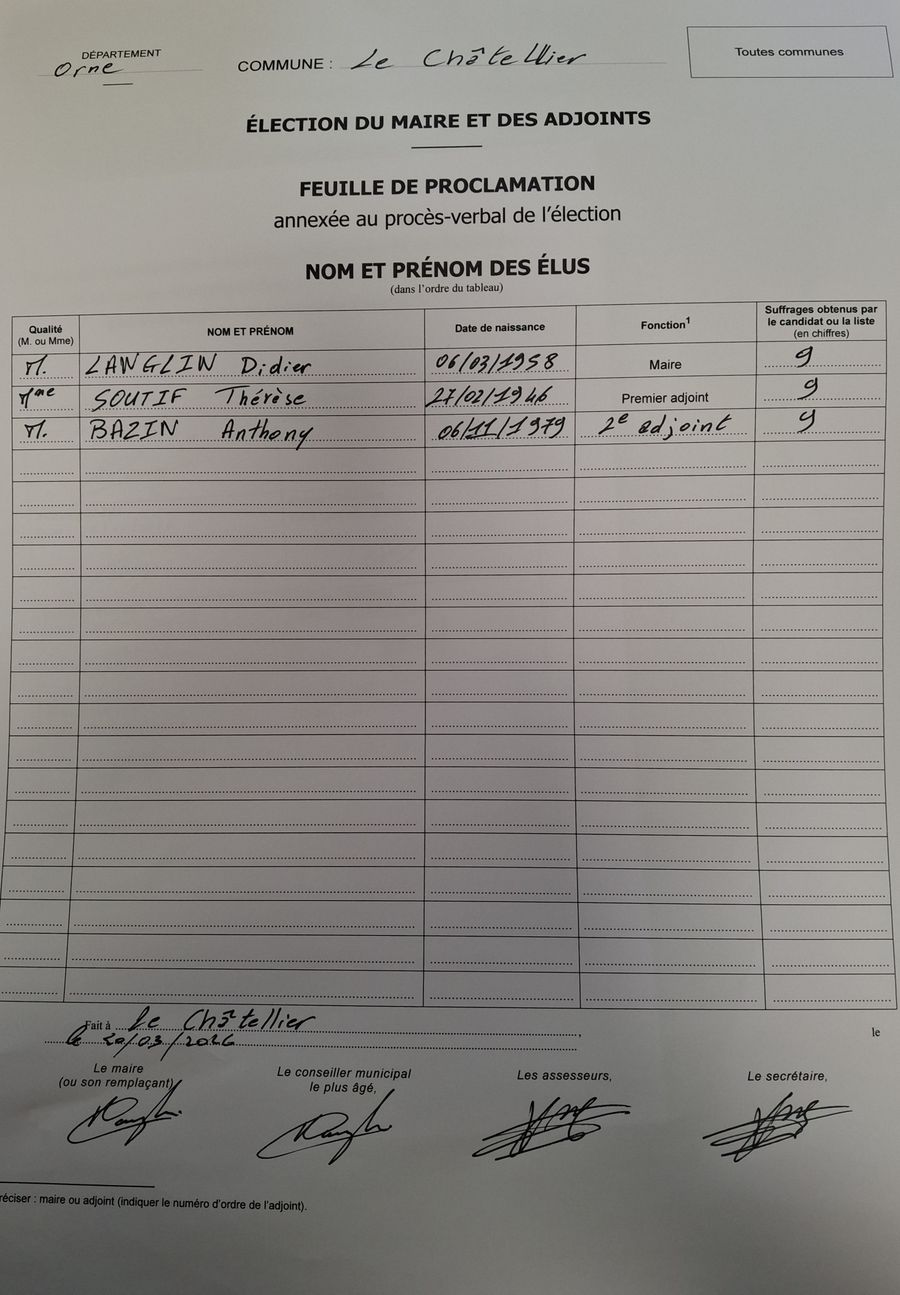 DÉPARTEMENT
Orne
COMMUNE : Le Châtellier
Toutes communes
ÉLECTION DU MAIRE ET DES ADJOINTS
FEUILLE DE PROCLAMATION
annexée au procès-verbal de l'élection
NOM ET PRÉNOM DES ÉLUS
(dans l'ordre du tableau)
Qualité (M. ou Mme) NOM ET PRÉNOM Date de naissance Fonction1 Suffrages obtenus par le candidat ou la liste (en chiffres)
M. LANGLIN Didier 06/03/1958 Maire 9
Mme SOUTIF Thérèse 27/02/1946 Premier adjoint 9
M. BAZIN Anthony 06/11/1979 2e adjoint 9
Fait à Le Châtellier, le
le 20/03/2026
Le maire (ou son remplaçant)
Le conseiller municipal le plus âgé,
Les assesseurs,
Le secrétaire,
réciser : maire ou adjoint (indiquer le numéro d'ordre de l'adjoint).